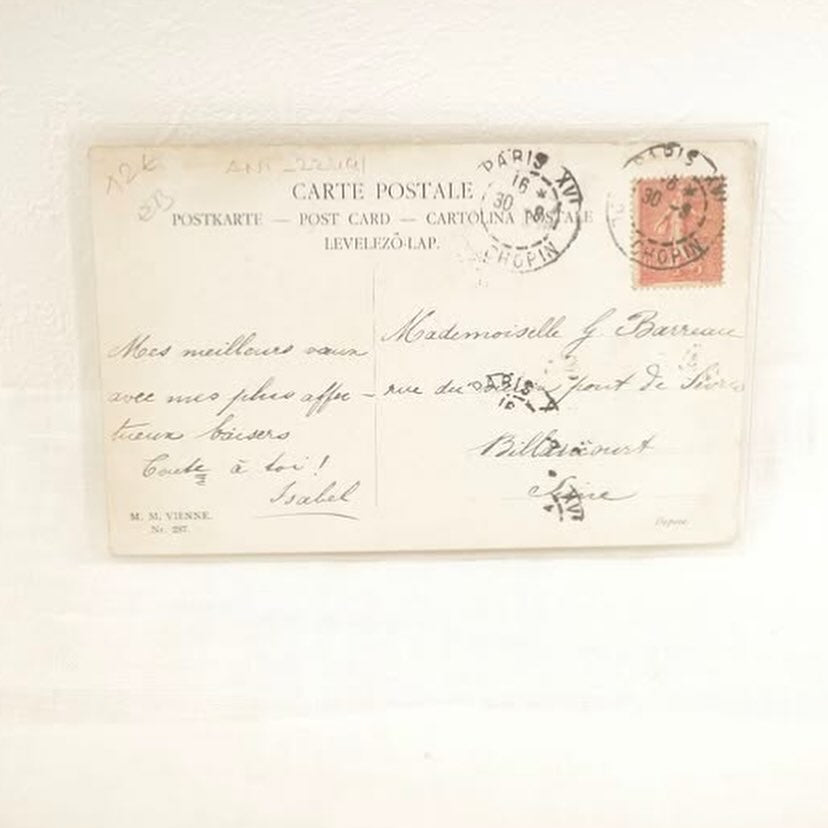 12€
CARTE POSTALE
POSTKARTE — POST CARD — CARTOLINA POSTALE
LEVELEZŐ-LAP.
PARIS XVI
16 *
30 - 8
CHOPIN
PARIS XVI
8 *
30 - 8
CHOPIN
Mes meilleurs vœux
avec mes plus affec-
tueux baisers
Toute à toi !
Isabel
Mademoiselle G Barreau
rue du pont de Sèvres
Billancourt
Seine
PARIS
16
XVI
M. M. VIENNE.
Nr. 287.
Déposé.